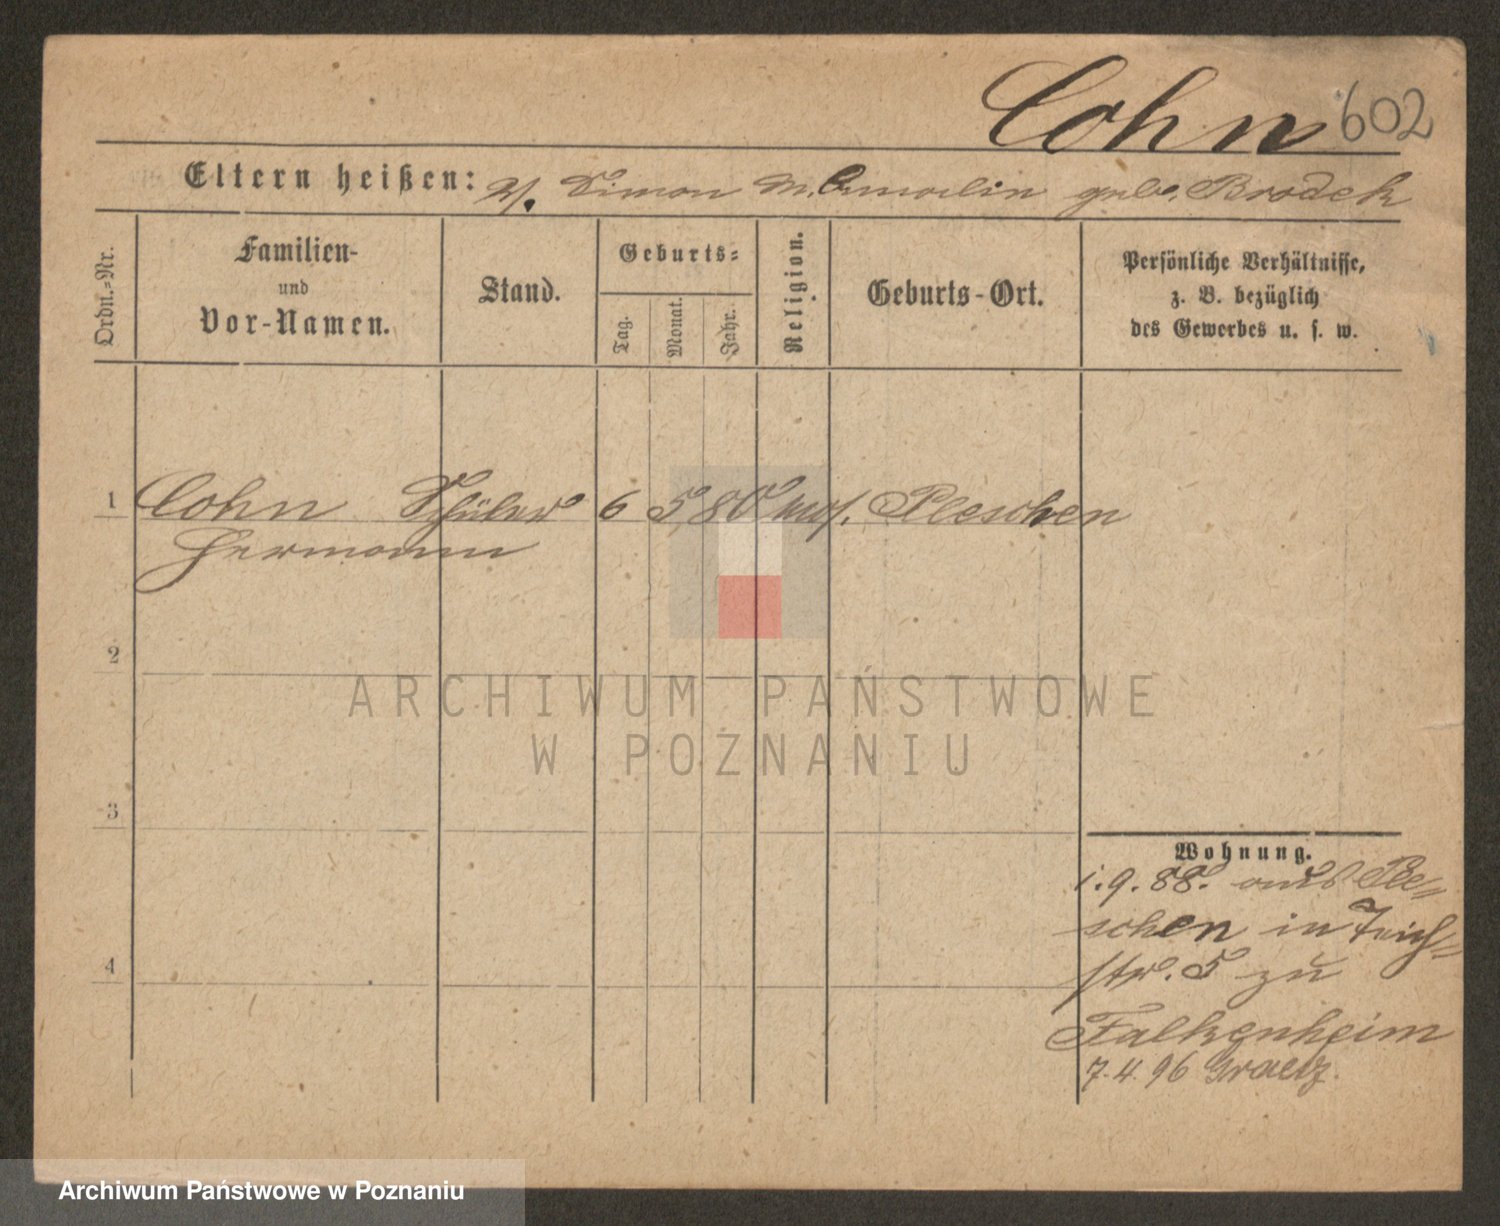 Cohn 602
Eltern heißen: V. Simon M. Ernestin geb. Brodek
Ordn.-Nr.
Familien-
und
Vor-Namen.
Stand.
Geburts-
Tag.
Monat.
Jahr.
Religion.
Geburts-Ort.
Persönliche Verhältnisse,
z. B. bezüglich
des Gewerbes u. s. w.
1 Cohn Schüler 6 5 80 mos. Pleschen
Hermann
2
3
4
Wohnung.
1.9.88. aus Ple=
schen in Teich=
str. 5 zu
Falkenheim
7.4.96 Graetz.
ARCHIWUM PAŃSTWOWE
W POZNANIU
Archiwum Państwowe w Poznaniu